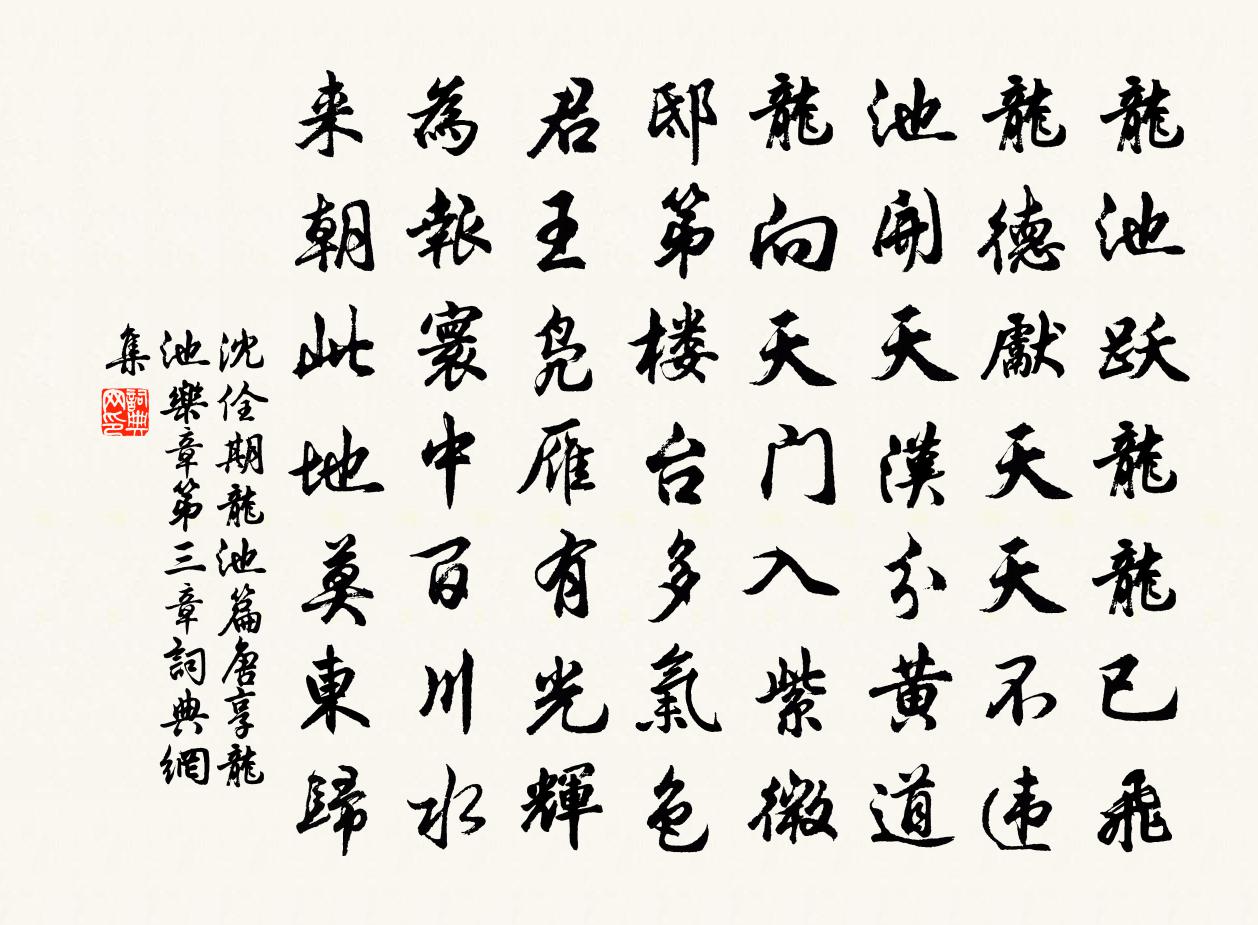 龍池跃龍龍已飛
龍德獻天天不违
池開天漢分黃道
龍向天门入紫微
邸第楼台多氣色
君王凫雁有光輝
為報寰中百川水
来朝此地莫東歸
沈佺期龍池篇唐享龍
池樂章第三章詞典網
集
詞典
网印